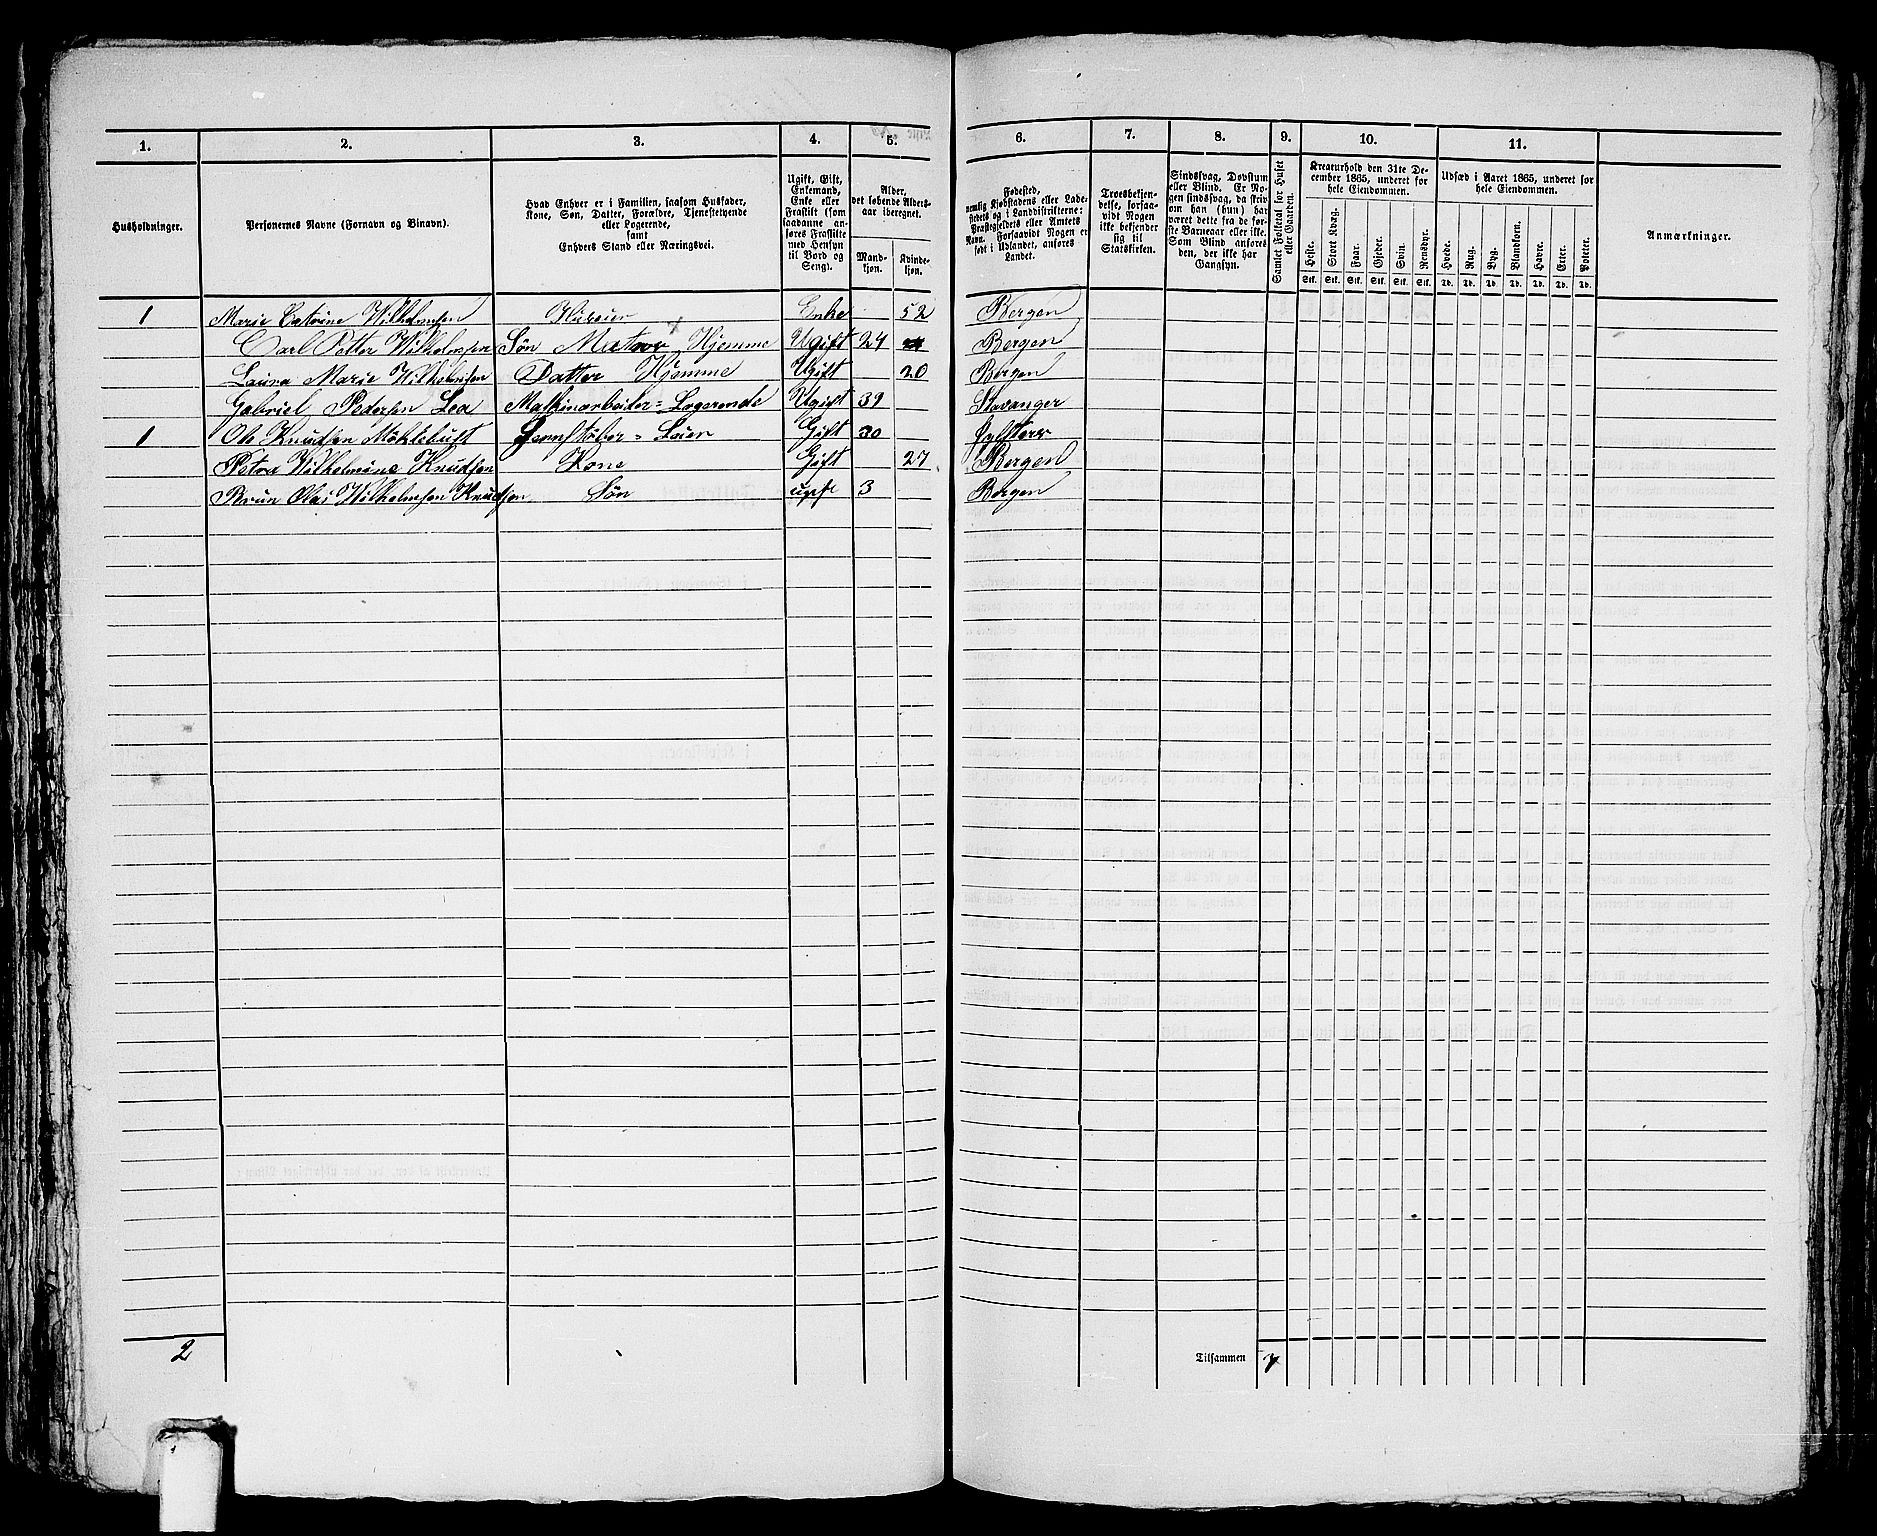 1. 2. 3. 4. 5. 6. 7. 8. 9. 10. 11.
Husholdninger.
Personernes Navne (Fornavn og Binavn).
Hvad Enhver er i Familien, saasom Husfader,
Kone, Søn, Datter, Forældre, Tjenestetyende
eller Logerende,
samt
Enhvers Stand eller Næringsvei.
Ugift, Gift,
Enkemand,
Enke eller
Fraskilt (som
saadanne an-
føres Fraskilte
med Hensyn
til Bord og
Seng).
Alder,
det løbende Alders-
aar iberegnet.
Mand-
kjøn.
Kvinde-
kjøn.
Fødested,
nemlig Kjøbstadens eller Lade-
stedets og i Landdistrikterne:
Præstegjeldets eller Amtets
Navn. Forsaavidt Nogen er
født i Udlandet, anføres
Landet.
Troesbekjen-
delse, forsaa-
vidt Nogen
ikke bekjender
sig til
Statskirken.
Sindssvag, Døvstum
eller Blind. Er No-
gen sindssvag, da skriv
om han (hun) har
været dette fra de før-
ste Barneaar eller ikke.
Som Blind anføres
den, der ikke har
Gangsyn.
Samlet Folketal for Huset
eller Gaarden.
Kreaturhold den 31te De-
cember 1865, underet for
hele Eiendommen.
Heste. Stort Kvæg. Faar. Gjeder. Svin. Rensdyr.
Stk. Stk. Stk. Stk. Stk. Stk.
Udsæd i Aaret 1865, underet for
hele Eiendommen.
Hvede. Rug. Byg. Blandkorn. Havre. Erter. Poteter.
Td. Td. Td. Td. Td. Td. Td.
Anmærkninger.
1 Marie Catrine Wilhelmsen Enke 52 Bergen
Carl Petter Wilhelmsen Søn Hjemme Ugift 24 Bergen
Laura Marie Wilhelmsen Datter Hjemme Ugift 20 Bergen
Gabriel Pedersen Lea Maskinarbeider = Logerende Ugift 39 Stavanger
1 Ole Knudsen Møklebust Jernstøber = Leier Gift 30
Petra Wilhelmine Knudsen Kone Gift 27 Bergen
Brun Olai Wilhelmsen Knudsen Søn ugift 3 Bergen
2 Tilsammen 7